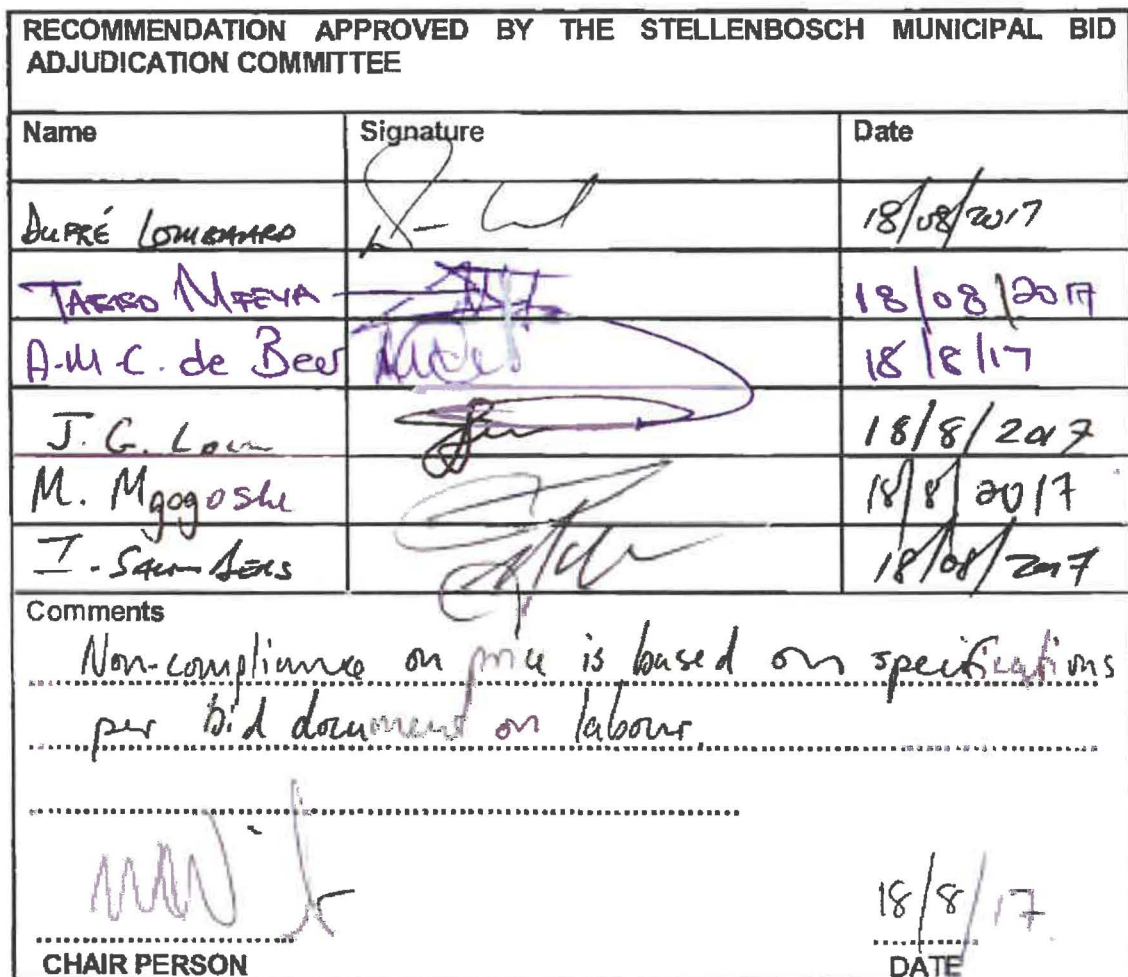 RECOMMENDATION APPROVED BY THE STELLENBOSCH MUNICIPAL BID
ADJUDICATION COMMITTEE
Name Signature Date
DUPRÉ LOMBAARD 18/08/2017
TABISO MFEYA 18/08/2017
A.M.C. de Beer 18/8/17
J. G. Louw 18/8/2017
M. Mgogoshe 18/8/2017
I. SAUNDERS 18/08/2017
Comments
Non-compliance on price is based on specifications
per bid document on labour.
18/8/17
CHAIR PERSON DATE